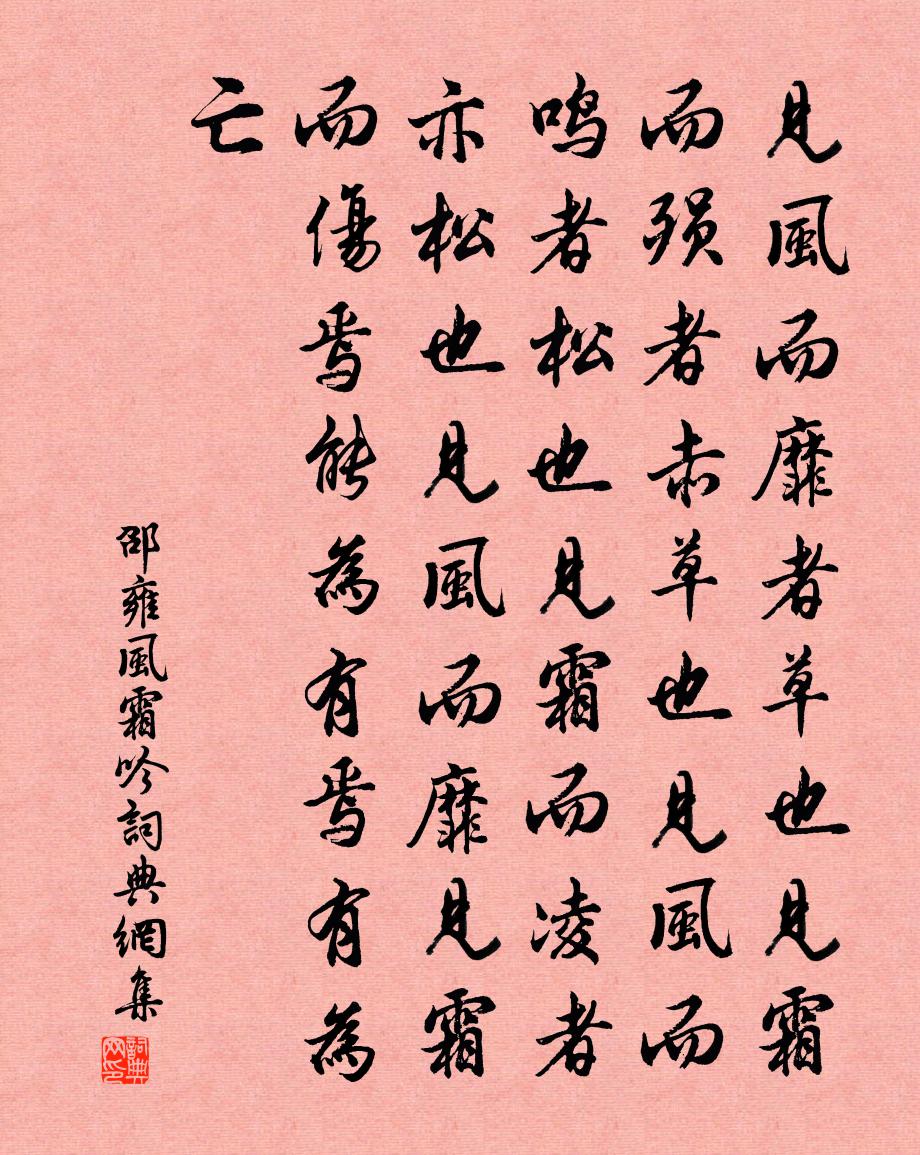 見風而靡者草也見霜
而殞者赤草也見風而
鳴者松也見霜而凌者
亦松也見風而靡見霜
而傷焉能為有焉有為
亡
邵雍風霜吟詞典網集
詞典网印